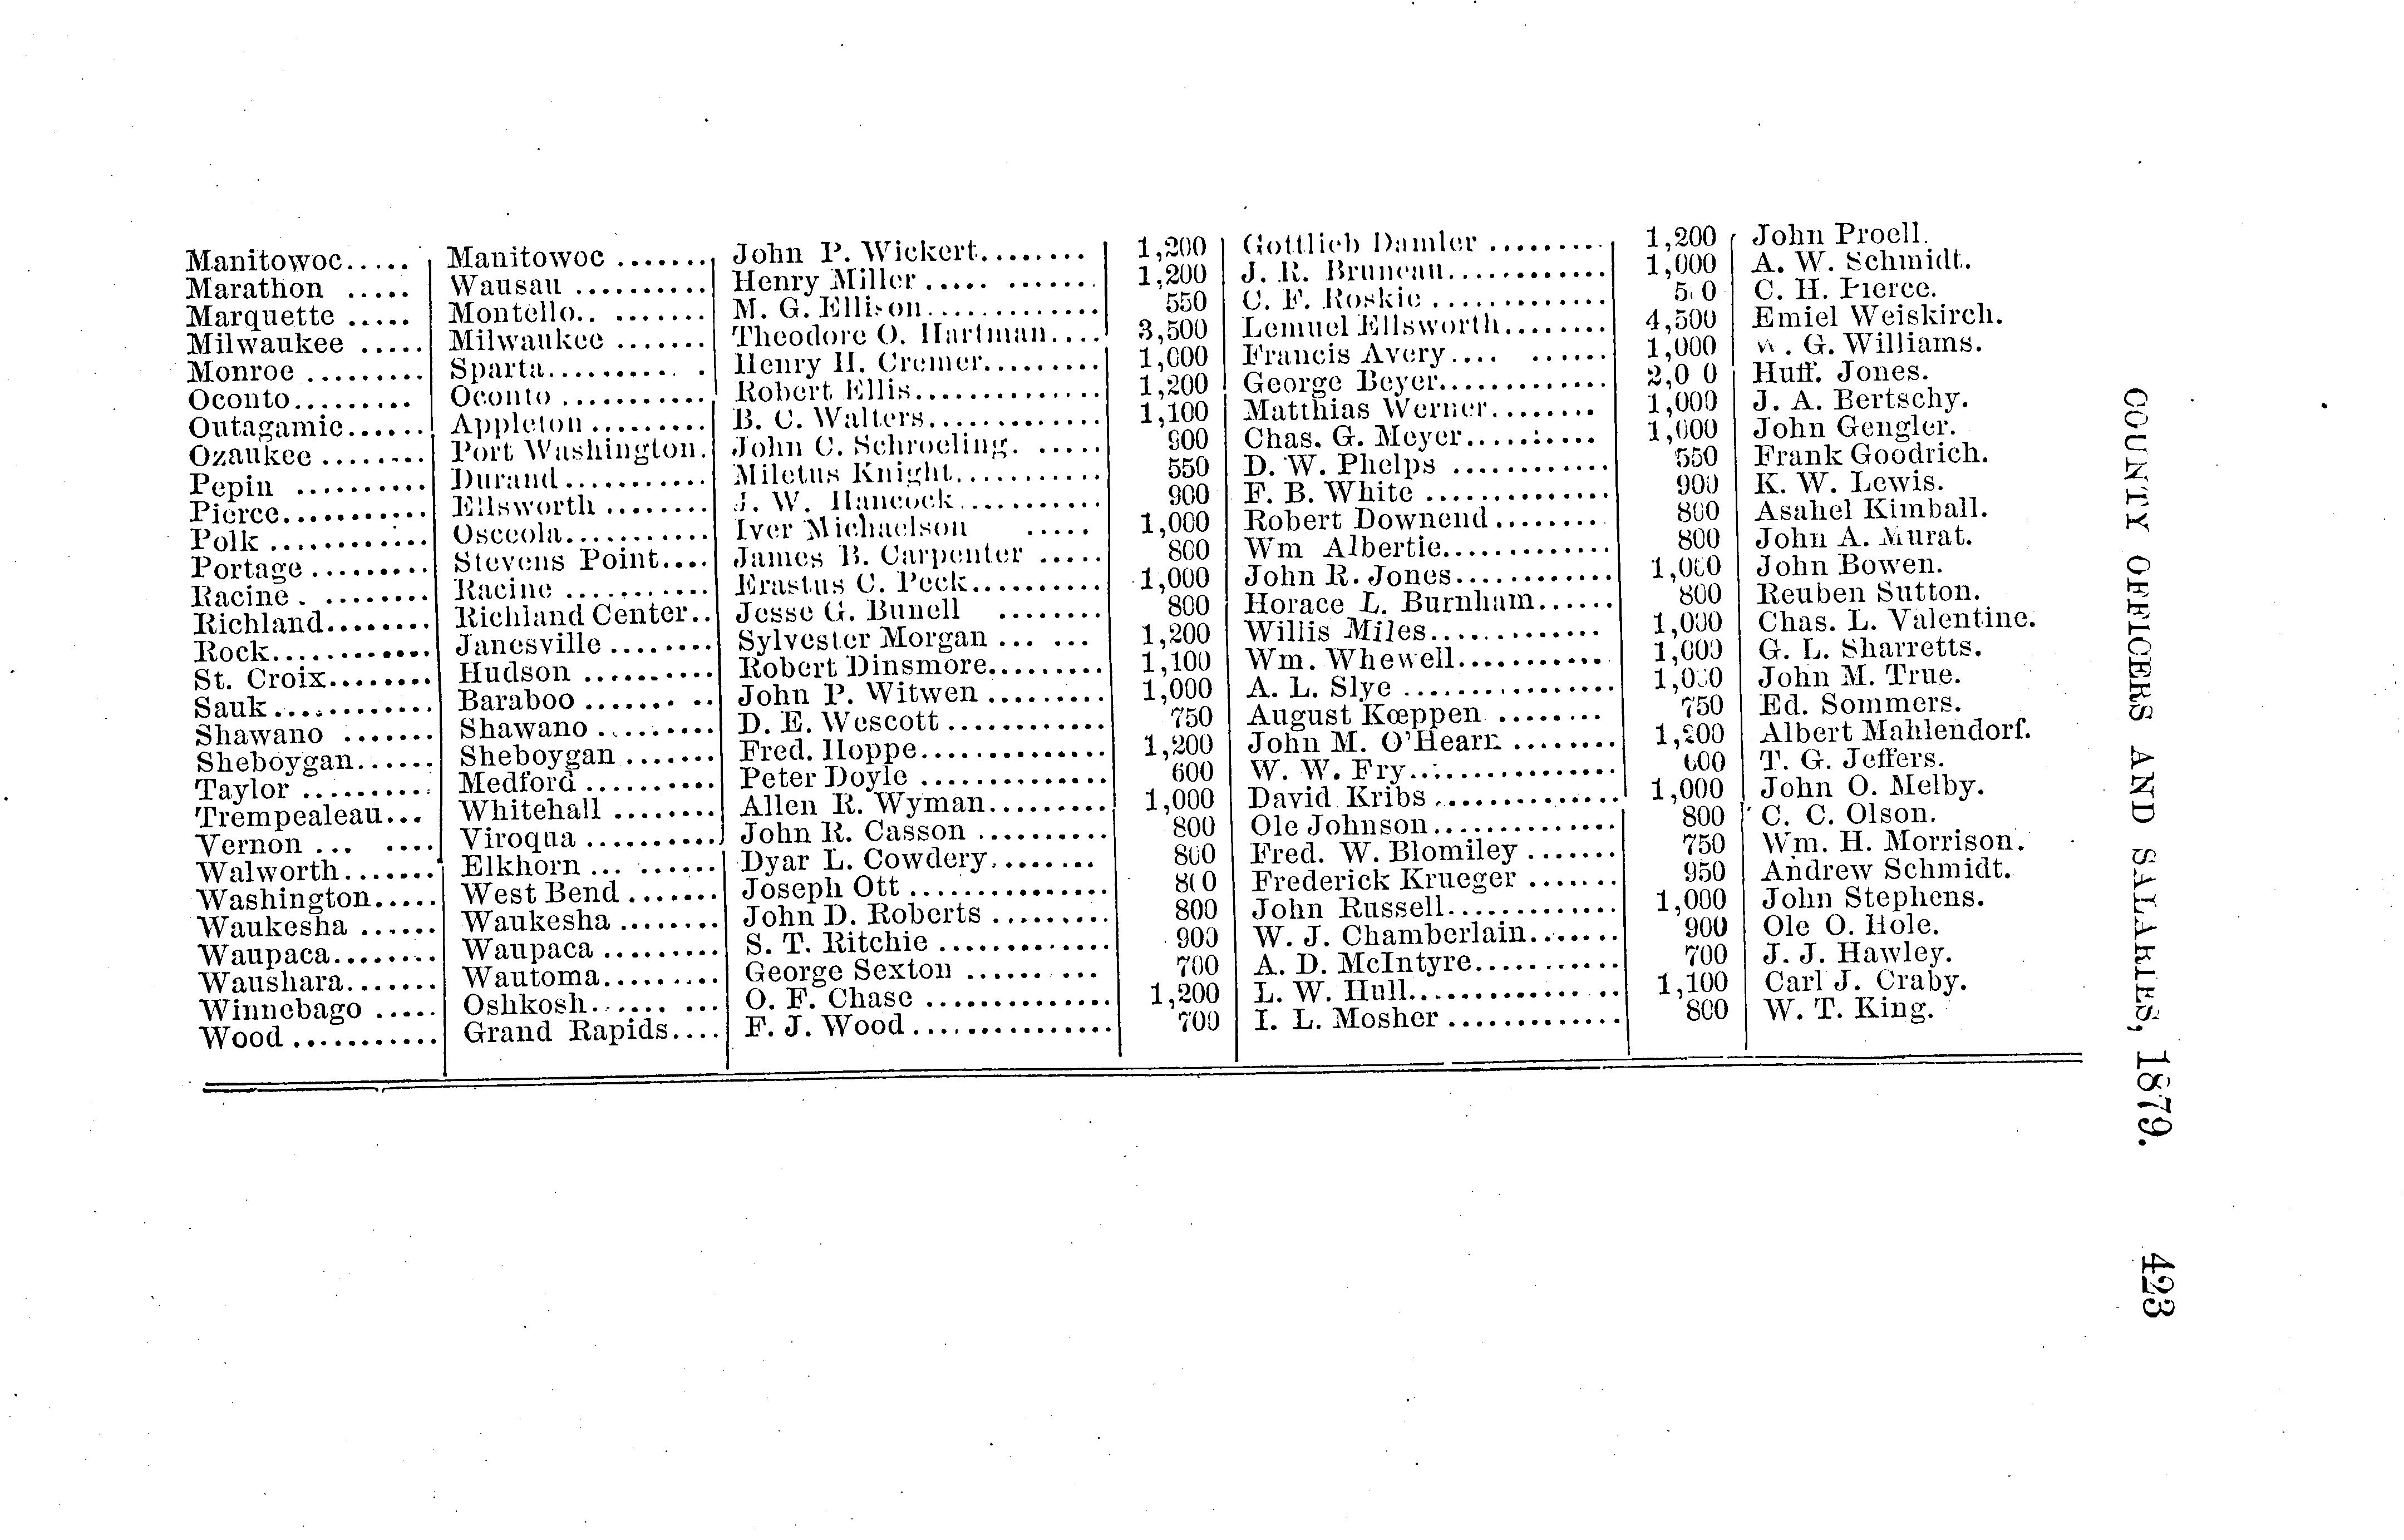 Manitowoc..... Manitowoc ....... John P. Wickert........ 1,200 Gottlieb Damler ......... 1,200 John Proell.
Marathon ..... Wausau .......... Henry Miller ..... ....... 1,200 J. R. Bruneau............ 1,000 A. W. Schmidt.
Marquette ..... Montello.. ....... M. G. Ellison............. 550 C. F. Roskie ............. C. H. Pierce.
Milwaukee ..... Milwaukee ....... Theodore O. Hartman.... 3,500 Lemuel Ellsworth........ 4,500 Emiel Weiskirch.
Monroe ......... Sparta.......... . Henry H. Cremer......... 1,000 Francis Avery.... ...... 1,000 G. Williams.
Oconto......... Oconto ........... Robert Ellis.............. 1,200 George Beyer............. 2,0 0 Huff. Jones.
Outagamie...... Appleton ......... B. C. Walters............. 1,100 Matthias Werner........ 1,000 J. A. Bertschy.
Ozaukee ........ Port Washington. John C. Schroeling. ..... 900 Chas. G. Meyer.......... 1,000 John Gengler.
Pepin .......... Durand........... Miletus Knight........... 550 D. W. Phelps ............ 550 Frank Goodrich.
Pierce........... Ellsworth ........ J. W. Hancock........... 900 F. B. White .............. 900 K. W. Lewis.
Polk ............ Osceola........... Iver Michaelson ..... 1,000 Robert Downend........ 800 Asahel Kimball.
Portage ......... Stevens Point.... James B. Carpenter ..... 800 Wm Albertie............. 800 John A. Murat.
Racine . ........ Racine ........... Erastus C. Peck.......... 1,000 John R. Jones............ 1,000 John Bowen.
Richland........ Richland Center.. Jesse G. Bunell ........ 800 Horace L. Burnham...... 800 Reuben Sutton.
Rock............ Janesville ........ Sylvester Morgan ... ... 1,200 Willis Miles............. 1,000 Chas. L. Valentine.
St. Croix........ Hudson .......... Robert Dinsmore......... 1,100 Wm. Whewell........... 1,000 G. L. Sharretts.
Sauk............ Baraboo ....... .. John P. Witwen ......... 1,000 A. L. Slye ................ 1,000 John M. True.
Shawano ....... Shawano ......... D. E. Wescott ............ 750 August Kœppen ........ 750 Ed. Sommers.
Sheboygan...... Sheboygan ....... Fred. Hoppe.............. 1,200 John M. O'Hearn ........ 1,200 Albert Mahlendorf.
Taylor .......... Medford .......... Peter Doyle .............. 600 W. W. Fry................ 600 T. G. Jeffers.
Trempealeau... Whitehall ........ Allen R. Wyman......... 1,000 David Kribs .............. 1,000 John O. Melby.
Vernon ... .... Viroqua .......... John R. Casson .......... 800 Ole Johnson.............. 800 C. C. Olson.
Walworth....... Elkhorn ... ...... Dyar L. Cowdery........ 800 Fred. W. Blomiley ....... 750 Wm. H. Morrison.
Washington..... West Bend ....... Joseph Ott ............... 800 Frederick Krueger ....... 950 Andrew Schmidt.
Waukesha ...... Waukesha ........ John D. Roberts ......... 800 John Russell............. 1,000 John Stephens.
Waupaca........ Waupaca ......... S. T. Ritchie ............. 900 W. J. Chamberlain....... 900 Ole O. Hole.
Waushara....... Wautoma......... George Sexton ...... ... 700 A. D. McIntyre........... 700 J. J. Hawley.
Winnebago ..... Oshkosh...... ... O. F. Chase .............. 1,200 L. W. Hull............. .. 1,100 Carl J. Craby.
Wood ........... Grand Rapids.... F. J. Wood............... 700 I. L. Mosher ............. 800 W. T. King.
COUNTY OFFICERS AND SALARIES, 1879. 423